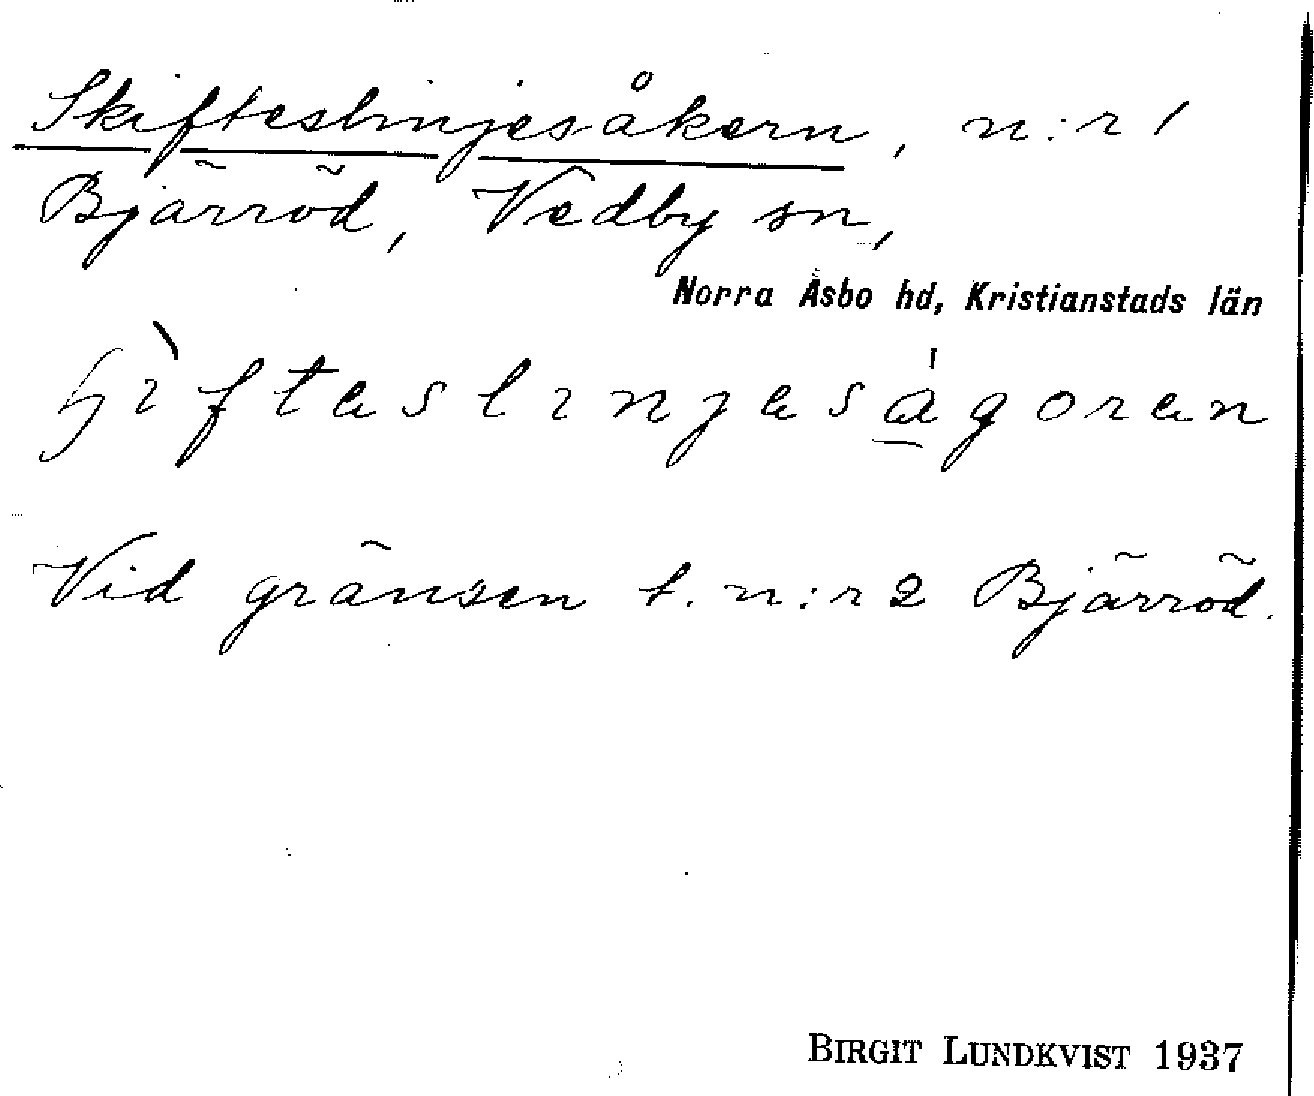 Skifteslinjesåkern, n:r 1
Bjärröd, Vedby sn,
Norra Åsbo hd, Kristianstads län
ɧìftaslinjasågoran
Vid gränsen t. n:r 2 Bjärröd.
BIRGIT LUNDKVIST 1937